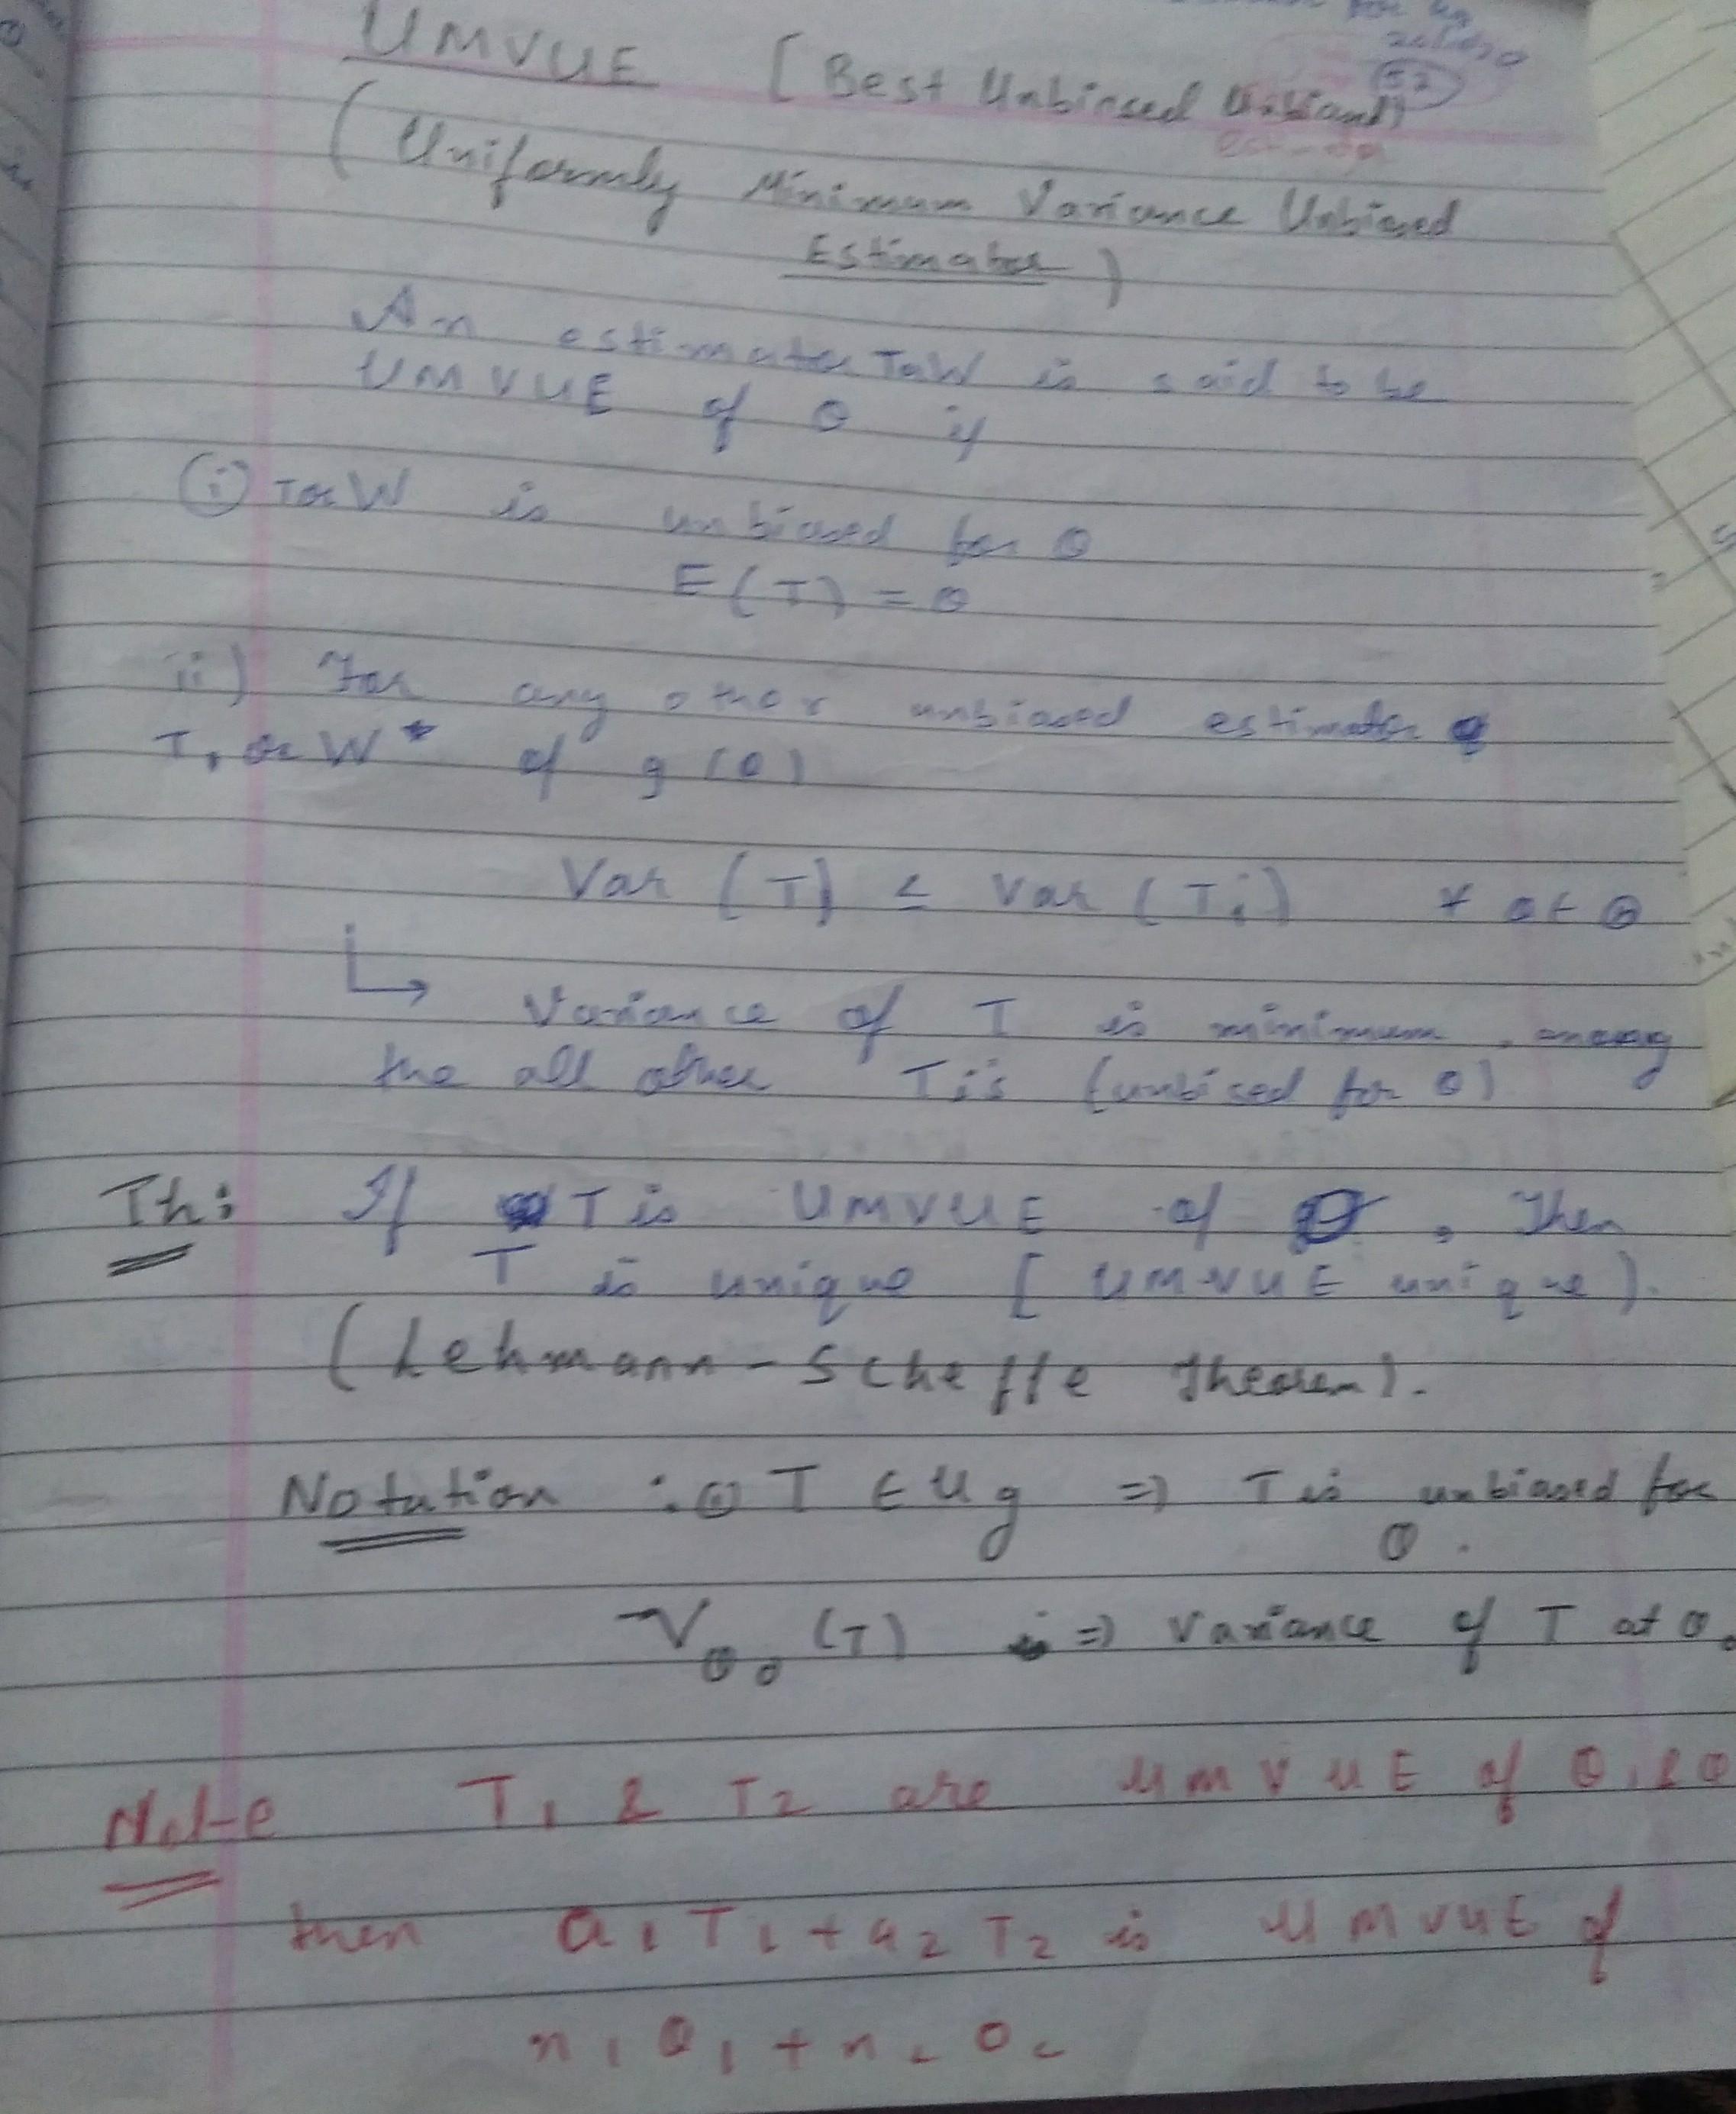 UMVUE [Best Unbiased
(Uniformly Minimum Variance Unbiased
Estimator)
An estimator T or W is said to be
UMVUE of θ if
(i) T or W is unbiased for θ
E(T) = θ
ii) For any other unbiased estimator
T₁ or W* of g(θ)
Var (T) ≤ Var (Tᵢ) ∀ θ ∈ Θ
↳ Variance of T is minimum, among
the all other Tᵢ's (unbised for θ)
Th: If T is UMVUE of θ, Then
T is unique [UMVUE unique).
(Lehmann-Scheffe Theorem).
Notation : T ∈ Ug ⇒ T is unbiased for
θ.
Vθ₀ (T) ⇒ Variance of T at θ₀
Note T₁ & T₂ are UMVUE of θ₁ & θ
then a₁T₁ + a₂T₂ is UMVUE of
n₁θ₁ + n₂θ₂